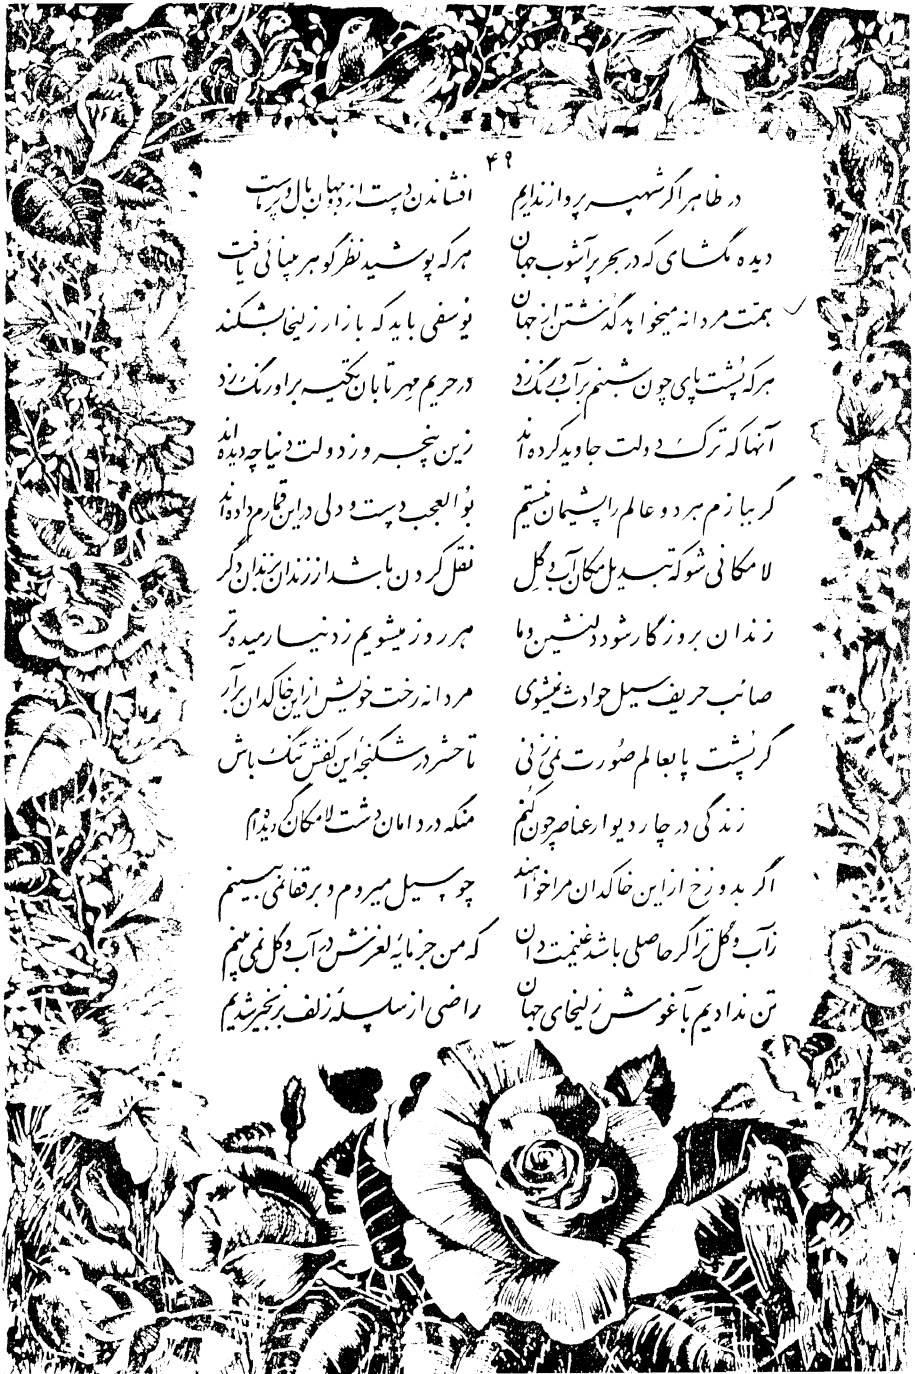 ۴۹
در ظاهر اگر شهپر پرواز نداریم افشاندن دست از دو جهان بال و پر ماست
دیده مگشای که در بحر پرآشوب جهان هرکه پوشید نظر گوهر بینائی یافت
همت مردانه میخواهد گذشتن از جهان یوسفی باید که بازار زلیخا بشکند
هرکه پشت پای چون شبنم بر آب و رنگ زد در حریم مهر تابان تکیه بر اورنگ زد
آنها که ترک دولت جاوید کرده اند زین پنجروز دولت دنیا چه دیده اند
گر ببازم هر دو عالم را پشیمان نیستم بوالعجب دست و دلی در این قمارم داده اند
لامکانی شو که تبدیل مکان آب و گل نقل کردن باشد از زندان بزندان دگر
زندان بروزگار شود دلنشین و ما هر روز میشویم ز دنیا رمیده تر
صائب حریف سیل حوادث نمیشوی مردانه رخت خویش ازین خاکدان برآر
گر پشت پا بعالم صورت نمی زنی تا حشر در شکنجه این کفش تنگ باش
زندگی در چار دیوار عناصر چون کنم منکه در دامان دشت لامکان گردیده ام
اگر بدوزخ ازین خاکدان مرا خوانند چو سیل میروم و بر قفا نمی بینم
زآب و گل ترا گر حاصلی باشد غنیمت دان که من جز مایه لغزش در آب و گل نمی بینم
تن ندادیم بآغوش زلیخای جهان راضی از سلسله زلف بزنجیر شدیم